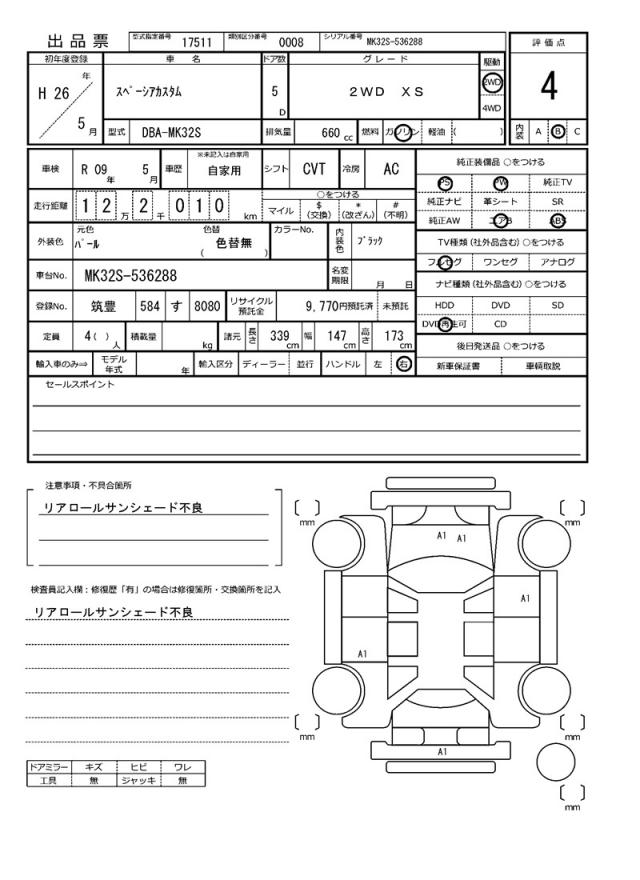 出品票 型式指定番号 17511 類別区分番号 0008 シリアル番号 MK32S-536288
評価点
4
内装 A B C
初年度登録 車名 ドア数 グレード 駆動
H 26 年 5 月 スペーシアカスタム 5 D 2WD XS 2WD
4WD
型式 DBA-MK32S 排気量 660 cc 燃料 ガソリン 軽油 ( )
車検 R 09 年 5 月 車歴 ※未記入は自家用 自家用 シフト CVT 冷房 AC
走行距離 1 2 万 2 千 0 1 0 km
○をつける
マイル $ (交換) * (改ざん) # (不明)
外装色 元色 パール 色替 色替無 ( ) カラーNo. 内装色 ブラック
車台No. MK32S-536288 名変期限 月 日
登録No. 筑豊 584 す 8080 リサイクル預託金 9,770円預託済 未預託
定員 4( )人 積載量 kg 諸元 長さ 339 cm 幅 147 cm 高さ 173 cm
輸入車のみ⇒ モデル年式 年 輸入区分 ディーラー 並行 ハンドル 左 右
純正装備品 ○をつける
PS PW 純正TV
純正ナビ 革シート SR
純正AW エアB ABS
TV種類(社外品含む) ○をつける
フルセグ ワンセグ アナログ
ナビ種類(社外品含む) ○をつける
HDD DVD SD
DVD再生可 CD
後日発送品 ○をつける
新車保証書 車輌取説
セールスポイント
注意事項・不具合箇所
リアロールサンシェード不良
検査員記入欄：修復歴「有」の場合は修復箇所・交換箇所を記入
リアロールサンシェード不良
ドアミラー キズ ヒビ ワレ
工具 無 ジャッキ 無
mm
mm
A1 A1
A1
A1
mm
mm
A1
mm